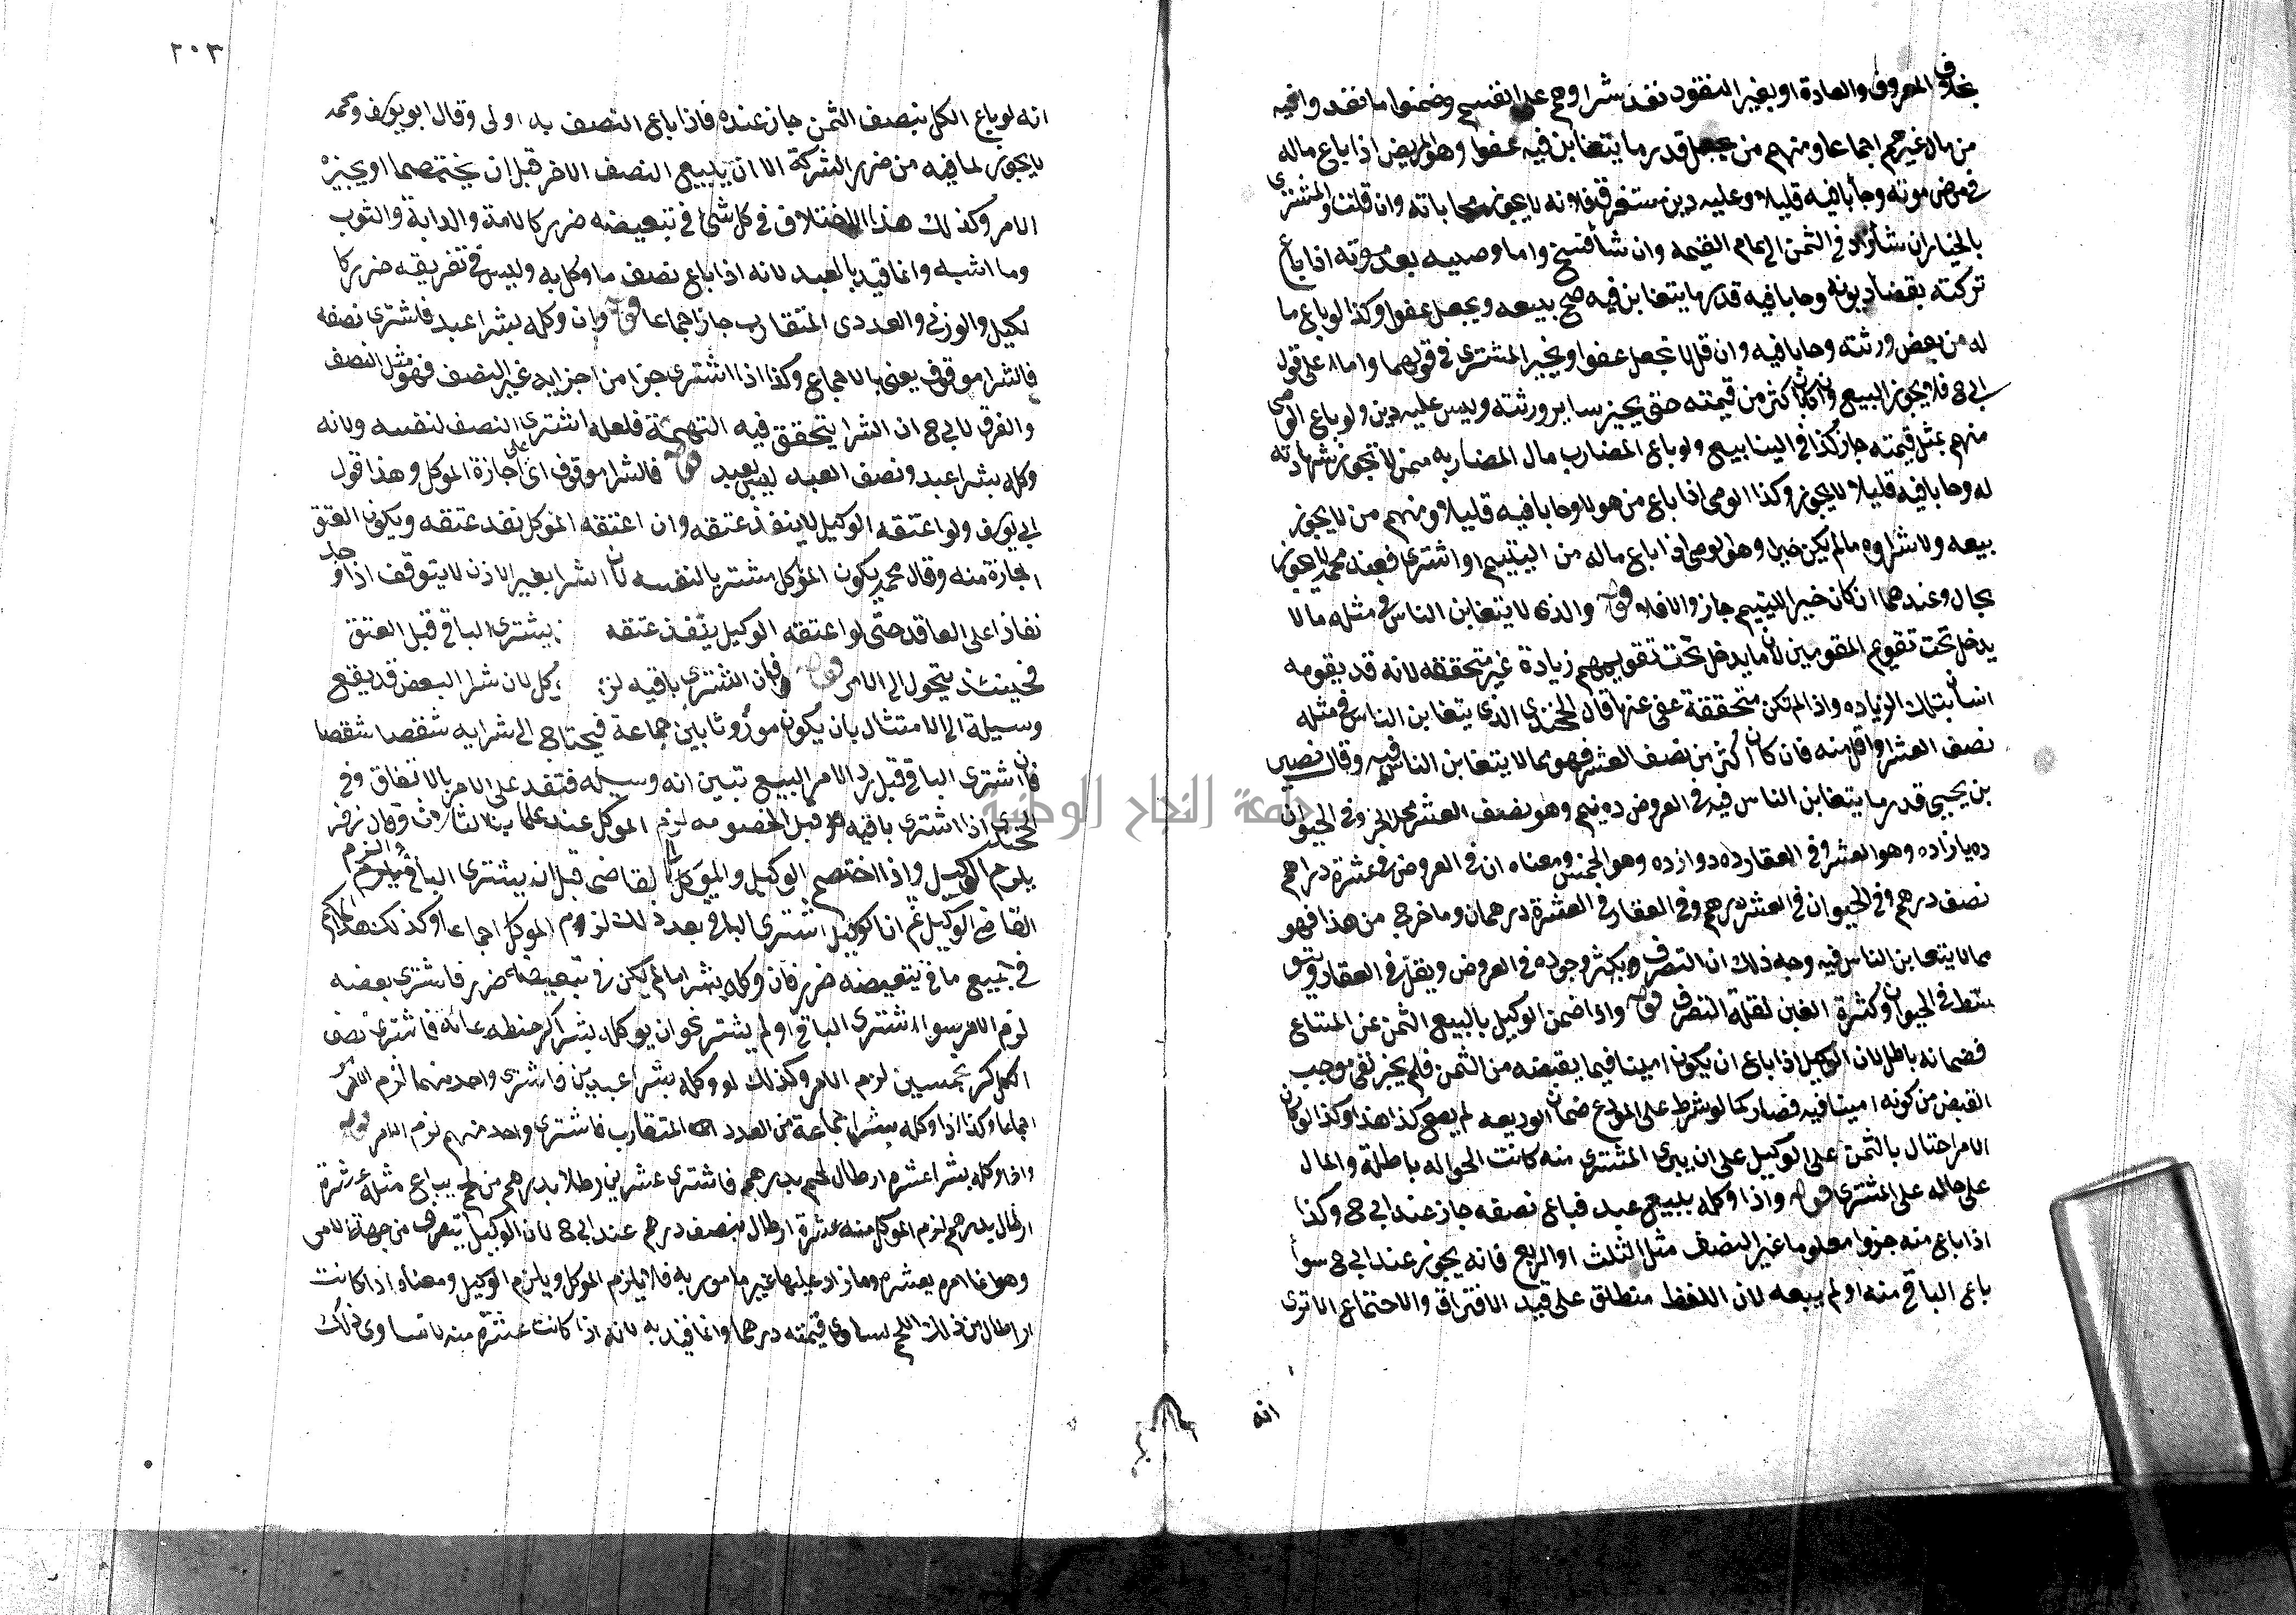 بخلاف المعروف والعادة او بغير النقود نفذ شراوهم على انفسهم وضمنوا ما نقدوا فيه
من مال غيرهم اجماعا ومنهم من يجعل قدر ما يتغابن فيه عفوا وهو المريض اذا باع ماله
في مرض موته وحابا فيه قليلا وعليه دين مستغرق فلانه لا يجوز محاباته وان قلت والمشترى
بالخيار ان شا زاد في الثمن الى تمام القيمه وان شا فسخ واما وصيه بعد موته اذا باع
تركته بقضا ديونه وحابا فيه قدر ما يتغابن فيه صح بيعه ويجعل عفوا وكذا لو باع ما
له من بعض ورثته وحابا فيه وان قل لا تجعل عفوا ويخير المشترى في قولهما واما على قول
ابي ح فلا يجوز البيع وان كان اكثر من قيمته حتى يجيز ساير ورثته وليس عليه دين ولو باع الوصى
منهم بمثل قيمته جاز كذا في الينابيع ولو باع المضارب مال المضاربه ممن لا تجوز شهادته
له وحابا فيه قليلا لا يجوز وكذا الوصى اذا باع من هولا وحابا فيه قليلا ومنهم من لا يجوز
بيعه ولا شراوه ما لم يكن خيرا وهو الوصى اذا باع ماله من اليتيم او اشترى فعند محمد لا يجوز
بحال وعندهما ان كان خيرا لليتيم جاز والا فلا قوله والذى لا يتغابن الناس في مثله ما لا
يدخل تحت تقويم المقومين لان ما يدخل تحت تقويمهم زيادة غير متحققه لانه قد يقومه
انسان بتلك الزياده واذا لم تكن متحققة عفى عنها قال الخجندى الذى يتغابن الناس في مثله
نصف العشر او اقل منه فان كان اكثر من نصف العشر فهو مما لا يتغابن الناس فيه وقال نصير
بن يحيى قدر ما يتغابن الناس فيه في العروض ده نيم وهو نصف العشر وفي الحيوان
ده يازاده وهو العشر وفي العقار ده دوازده وهو الخمس ومعناه ان في العروض في عشرة دراهم
نصف درهم وفي الحيوان في العشره درهم وفي العقار في العشرة درهمان وما خرج من هذا فهو
مما لا يتغابن الناس فيه وجه ذلك ان التصرف يكثر وجوده في العروض ويقل في العقار ويتو
سط في الحيوان وكثرة الغبن لقلة التصرف قوله واذا ضمن الوكيل بالبيع الثمن عن المبتاع
فضمانه باطل لان الوكيل اذا باع ان يكون امينا فيما يقبضه من الثمن فلم يجز نفى موجب
القبض من كونه امينا فيه فصار كما لو شرط على المودع ضمان الوديعه لم يصح كذا هذا وكذا لو كان
الامر احتال بالثمن على الوكيل على ان يبرى المشترى منه كانت الحواله باطلة والمال
على حاله على المشترى قوله واذا وكله ببيع عبد فباع نصفه جاز عند ابي ح وكذا
اذا باع منه جزوا معلوما غير النصف مثل الثلث او الربع فانه يجوز عند ابي ح سوا
باع الباقى منه او لم يبعه لان اللفظ مطلق على قيد الافتراق والاجتماع الا ترى
انه
٢٠٣
انه لو باع الكل بنصف الثمن جاز عنده فاذا باع النصف به اولى وقال ابو يوسف ومحمد
لا يجوز لما فيه من ضرر الشركة الا ان يبيع النصف الاخر قبل ان يختصما او يجيزه
الامر وكذلك هذا الاختلاف في كل شى في تبعيضه ضرر كالامة والدابة والثوب
وما اشبه وانما قيد بالعبد لانه اذا باع نصف ما وكل به وليس في تفريقه ضرر كا
لكيل والوزني والعددى المتقارب جاز اجماعا قوله وان وكله بشرا عبد فاشترى نصفه
فالشرا موقوف يعنى بالاجماع وكذا اذا اشترى جزا من اجزايه غير النصف فهو مثل النصف
والفرق لابي ح ان الشرا يتحقق فيه التهمة فلعله اشترى النصف لنفسه ولانه
وكله بشرا عبد ونصف العبد ليس بعبد قوله فالشرا موقوف اى على اجازة الموكل وهذا قول
ابي يوسف ولو اعتقه الوكيل لا ينفذ عتقه وان اعتقه الموكل نفذ عتقه ويكون العتق
اجازة منه وقال محمد يكون الموكل مشتريا لنفسه لان الشرا بغير الاذن لا يتوقف اذا وجد
نفاذا على العاقد حتى لو اعتقه الوكيل ينفذ عتقه يشترى الباقى قبل العتق
فحينئذ يتحول الى الامر قوله فان اشترى باقيه لزم الموكل لان شرا البعض قد يقع
وسيلة الى الامتثال بان يكون موروثا بين جماعة فيحتاج الى شرايه شقصا شقصا
فان اشترى الباقى قبل رد الامر البيع تبين انه وسيله فتنفذ على الامر بالاتفاق وفي
الخجندى اذا اشترى باقيه قبل الخصومه لزم الموكل عند علماينا الثلاثه وقال زفر
يلزم الوكيل واذا اختصم الوكيل والموكل الى القاضى قبل ان يشترى الباقى والزم
القاضى الوكيل ثم ان الوكيل اشترى الباقى بعد ذلك لزم الموكل اجماعا وكذلك هذا الحكم
في جميع ما في تبعيضه ضرر فان وكله بشرا ما لم يكن في تبعيضه ضرر فاشترى بعضه
لزم الامر سوا اشترى الباقى او لم يشتر نحو ان يوكله بشرا كر حنطه بمائه فاشترى نصف
الكر بخمسين لزم الامر وكذلك لو وكله بشرا عبدين فاشترى واحد منهما لزم الامر
اجماعا وكذا اذا وكله بشرا جماعة من العدد المتقارب فاشترى واحد منهم لزم الامر قوله
واذا وكله بشرا عشره ارطال لحم بدرهم فاشترى عشرين رطلا بدرهم من لحم يباع مثله عشرة
ارطال بدرهم لزم الموكل منه عشرة ارطال بنصف درهم عند ابي ح لان الوكيل يتصرف من جهة الامر
وهو انما امره بعشره وما زاد عليها غير مامور به فلا يلزم الموكل ويلزم الوكيل ومعناه اذا كانت
ارطال من ذلك اللحم يساوى قيمته درهما وانما قيد به لانه اذا كانت عشرة منه لا تساوى ذلك
جامعة النجاح الوطنية